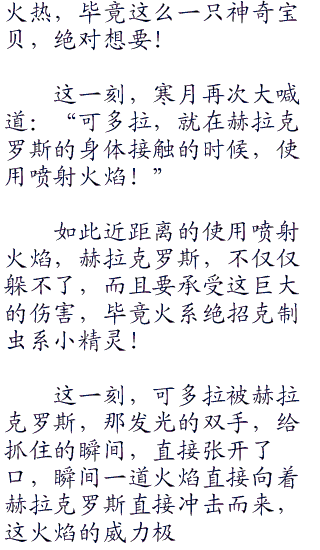 火热，毕竟这么一只神奇宝
贝，绝对想要！
这一刻，寒月再次大喊
道：“可多拉，就在赫拉克
罗斯的身体接触的时候，使
用喷射火焰！”
如此近距离的使用喷射
火焰，赫拉克罗斯，不仅仅
躲不了，而且要承受这巨大
的伤害，毕竟火系绝招克制
虫系小精灵！
这一刻，可多拉被赫拉
克罗斯，那发光的双手，给
抓住的瞬间，直接张开了
口，瞬间一道火焰直接向着
赫拉克罗斯直接冲击而来，
这火焰的威力极